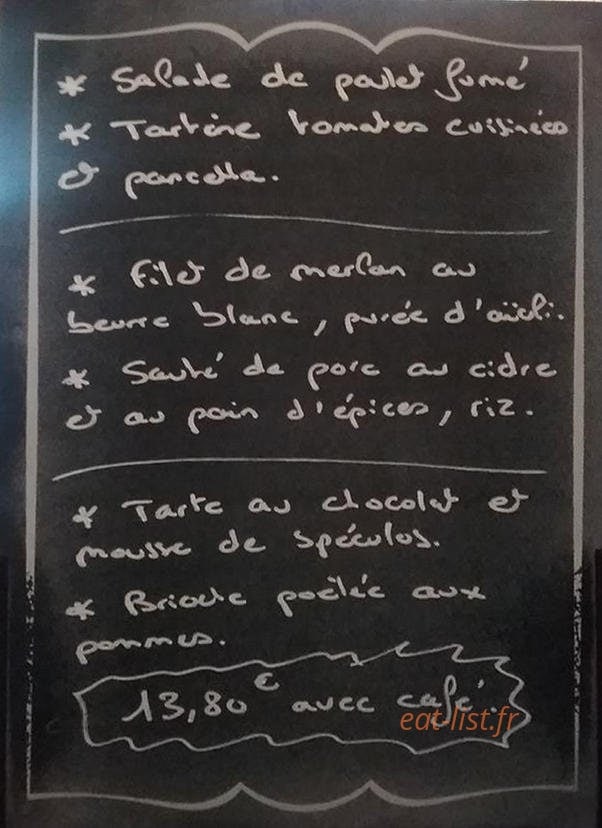 * Salade de poulet fumé
* Tartine tomates cuisinées
et pancetta.
* Filet de merlan au
beurre blanc, purée d'aïoli.
* Sauté de porc au cidre
et au pain d'épices, riz.
* Tarte au chocolat et
mousse de spéculos.
* Brioche poêlée aux
pommes.
13,80€ avec café.
eat-list.fr